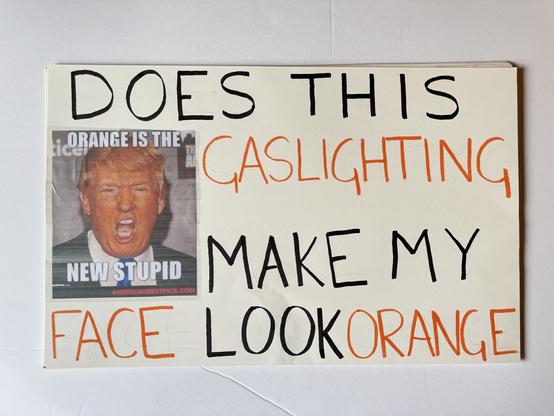 DOES THIS
GASLIGHTING
MAKE MY
FACE LOOK ORANGE
ORANGE IS THE
NEW STUPID
AMERICASBESTPICS.COM